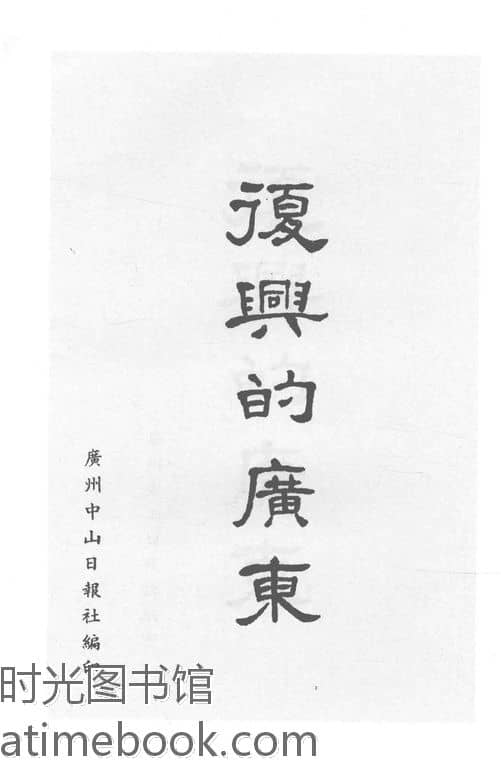 復興的廣東
廣州中山日報社編印
时光图书馆
atimebook.com